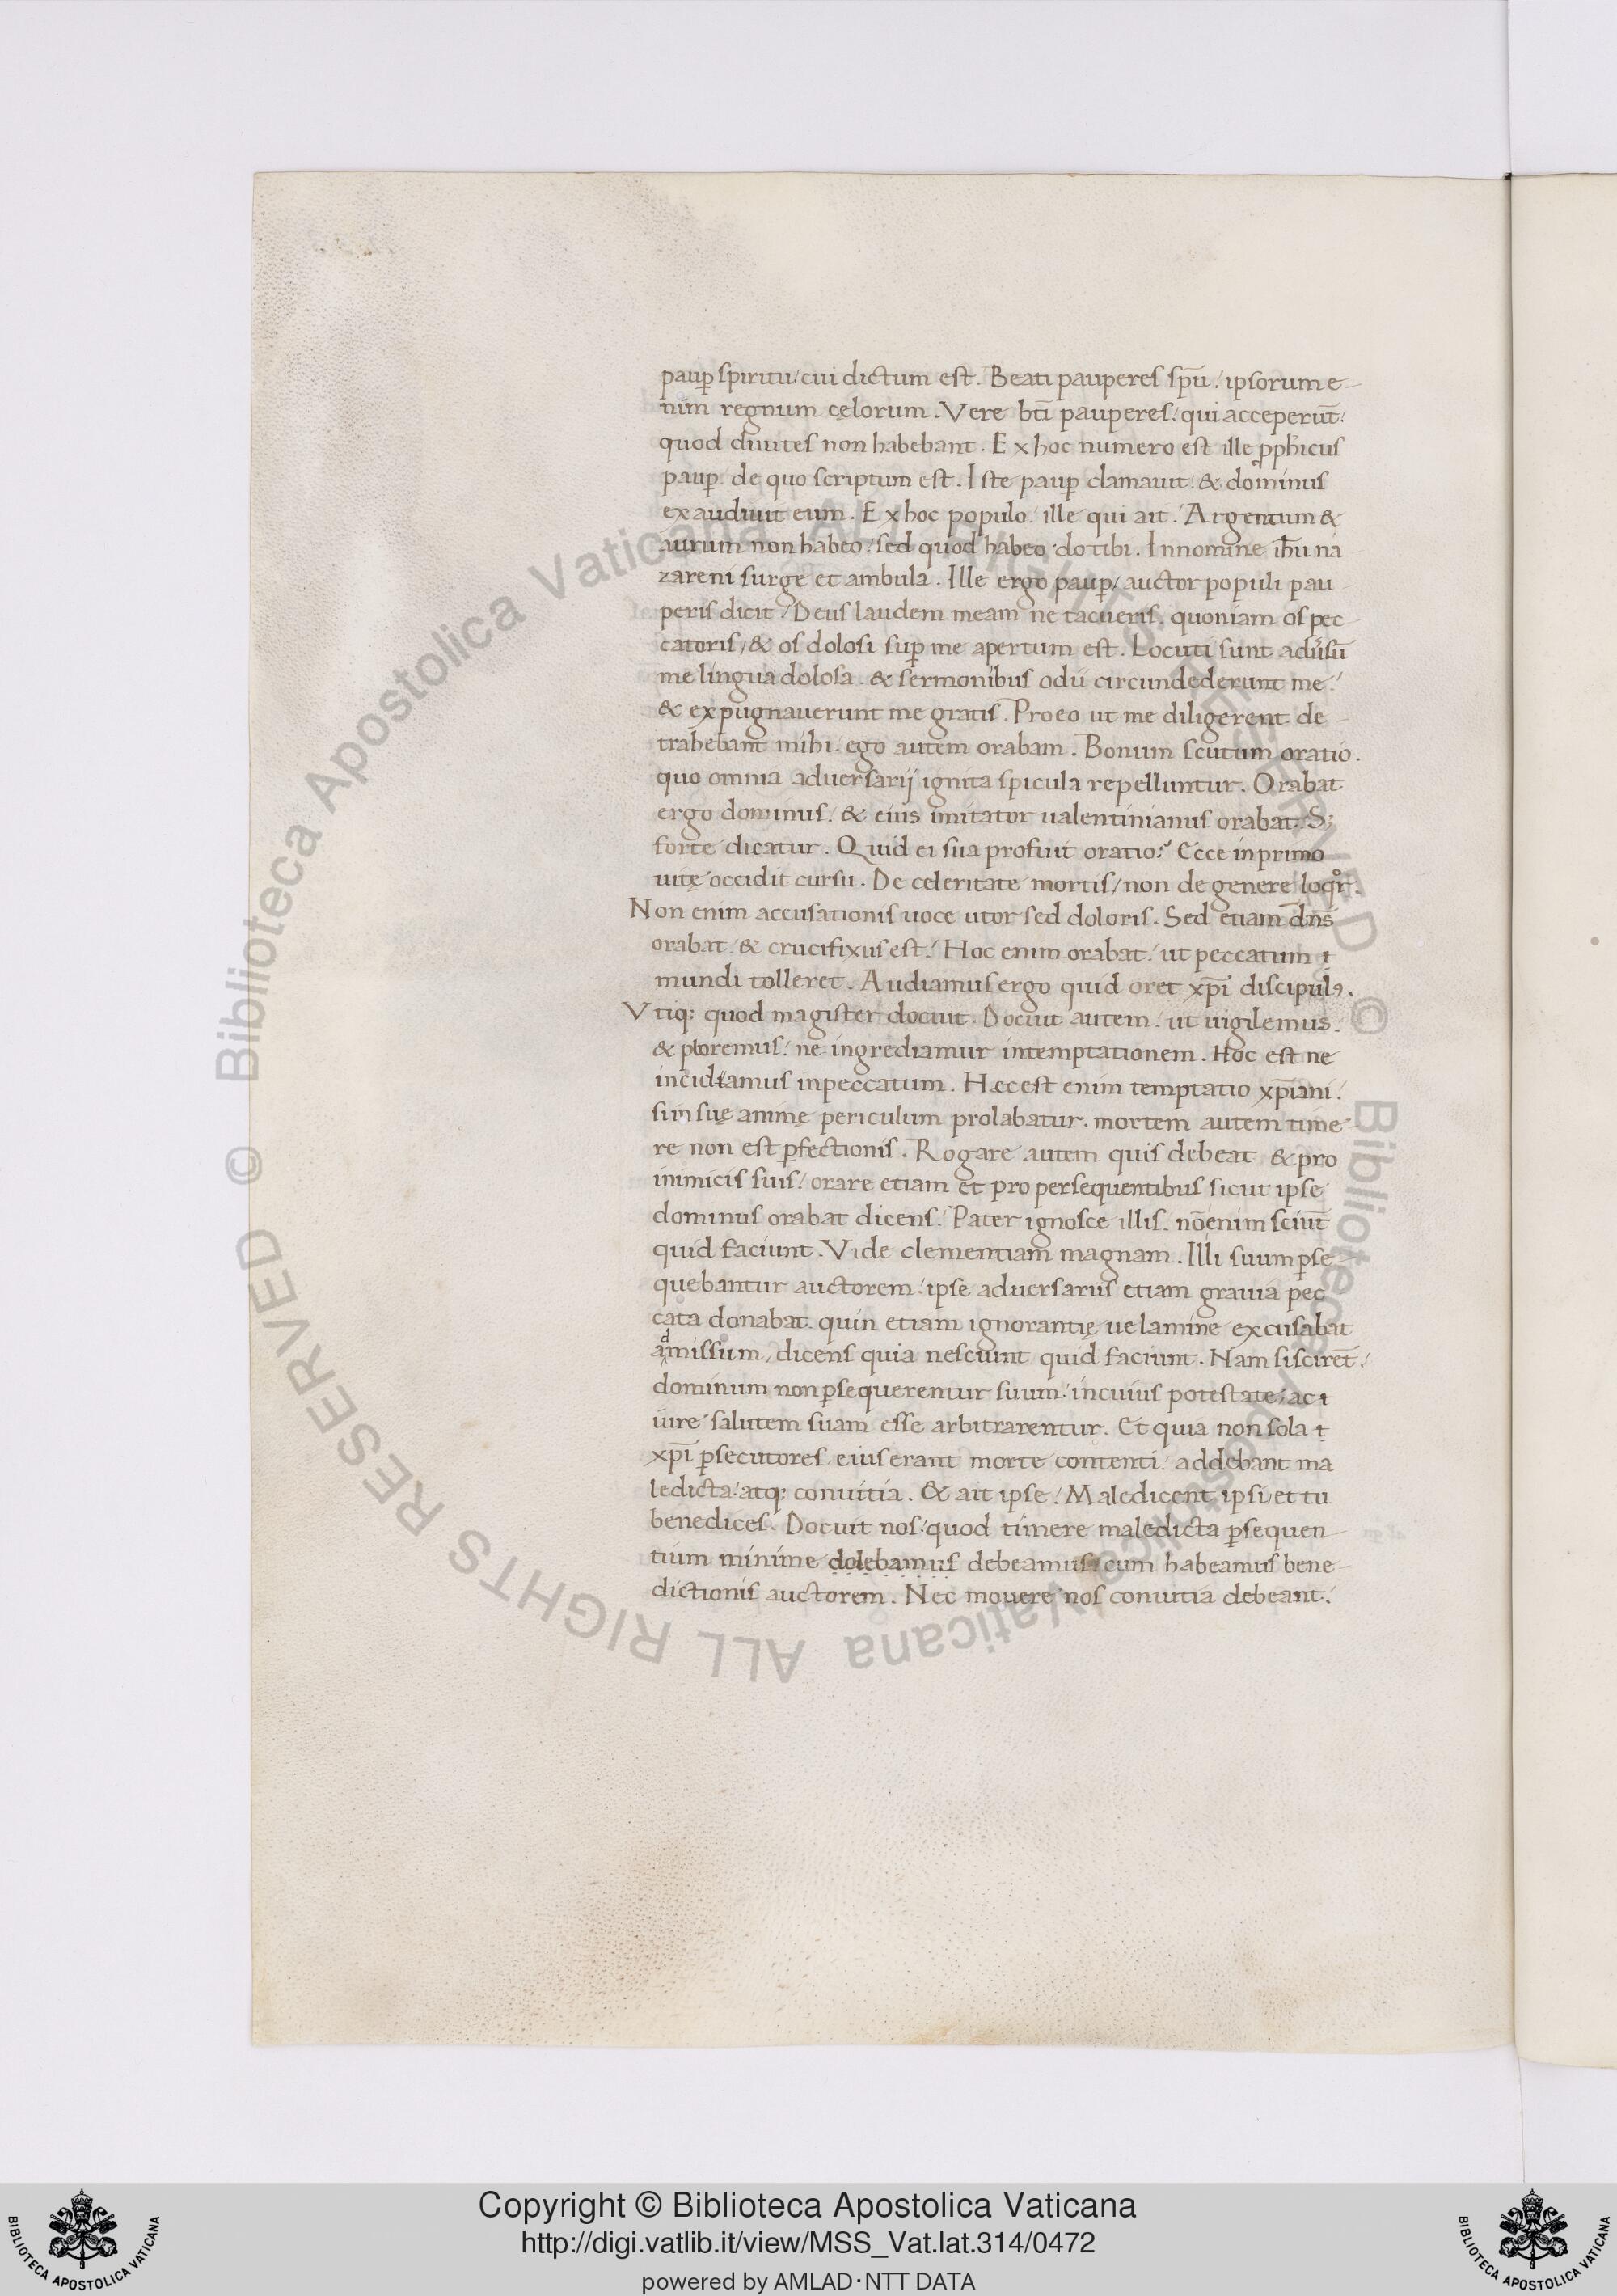 paup̱ spiritu / cui dictum est. Beati pauperes sp̅u / ipsorum e-
nim regnum cęlorum. Vere bt̅i pauperes / qui acceperun̅t /
quod diuites non habebant. Ex hoc numero est ille p̱ph̅icus
paup̱ de quo scriptum est. Iste paup̱ clamauit / & dominus
exaudiuit eum. Ex hoc populo / ille qui ait / Argentum &
aurum non habeo / sed quod habeo do tibi. In nomine ih̅u na
zareni surge et ambula. Ille ergo paup̱ / auctor populi pau-
peris dicit / Deus laudem meam ne tacueris, quoniam os pec-
catoris / & os dolosi sup̱ me apertum est. Locuti sunt adu̓su̅
me lingua dolosa. & sermonibus odii circundederunt me /
& expugnauerunt me gratis. Pro eo ut me diligerent de-
trahebant mihi / ego autem orabam. Bonum scutum oratio.
quo omnia aduersarij ignita spicula repelluntur. Orabat
ergo dominus / & eius imitator ualentinianus orabat. S;
forte dicatur. Quid ei sua profuit oratio? Ecce in primo
uitę occidit cursu. De celeritate mortis / non de genere loqͦr.
Non enim accusationis uoce utor sed doloris. Sed etiam dn̅s
orabat / & crucifixus est / Hoc enim orabat / ut peccatum
mundi tolleret. Audiamus ergo quid oret xp̅i discipulꝰ.
Vtiq; quod magister docuit. Docuit autem / ut uigilemus.
& ploremus / ne ingrediamur in temptationem. Hoc est ne
incidiamus in peccatum. Hæc est enim temptatio xp̅iani /
si in suę animę periculum prolabatur. mortem autem time-
re non est p̱fectionis. Rogare autem quis debeat & pro
inimicis suis / orare etiam et pro persequentibus sicut ipse
dominus orabat dicens / Pater ignosce illis. no̅ enim sciun̅t
quid faciunt. Vide clementiam magnam. Illi suum p̱se-
quebantur auctorem / ipse aduersariis etiam grauia pec
cata donabat. quin etiam ignorantię uelamine excusabat
admissum, dicens quia nesciunt quid faciunt. Nam si sciren̅t /
dominum non p̱sequerentur suum / in cuius potestate / ac
iure salutem suam esse arbitrarentur. Et quia non sola
xp̅i p̱secutores eius erant morte contenti / addebant ma
ledicta / atq; conuitia. & ait ipse / Maledicent ipsi et tu
benedices / Docuit nos / quod timere maledicta p̱sequen-
tium minime dolebamus debeamus / cum habeamus bene-
dictionis auctorem. Nec mouere nos conuitia debeant /
Copyright © Biblioteca Apostolica Vaticana
http://digi.vatlib.it/view/MSS_Vat.lat.314/0472
powered by AMLAD·NTT DATA
BIBLIOTECA APOSTOLICA VATICANA
BIBLIOTECA APOSTOLICA VATICANA
© Biblioteca Apostolica Vaticana ALL RIGHTS RESERVED © Biblioteca Apostolica Vaticana ALL RIGHTS RESERVED